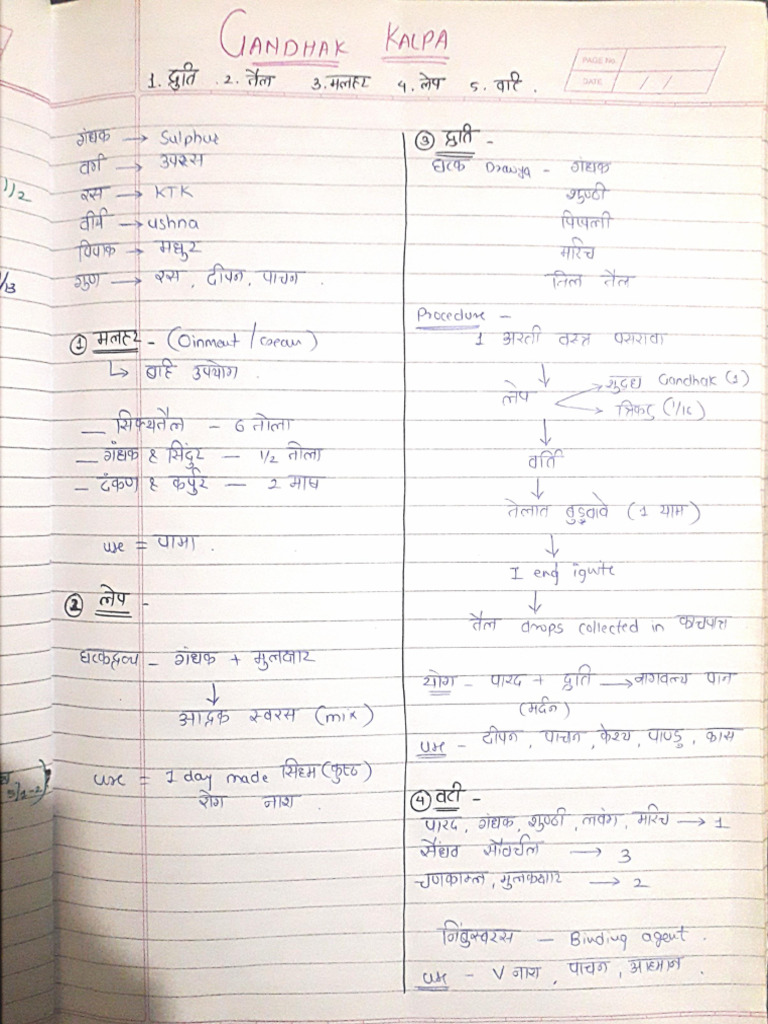 GANDHAK KALPA
PAGE No.
DATE / /
1. द्रुति . 2. तैल 3. मलहर 4. लेप 5. वटि .
गंधक → Sulphur
वर्ग → उपरस
रस → KTK
वीर्य → ushna
विपाक → मधुर
गुण → रस , दीपन , पाचन .
① मलहर - (Oinmeut / Cream)
↳ बाह्य उपयोग .
— सिक्थतैल - 6 तोला
— गंधक & सिंदुर — 1/2 तोला
— टंकण & कर्पुर — 2 माष
use = पामा .
② लेप -
घटकद्रव्य - गंधक + मुलक्षार
↓
आद्रक स्वरस (mix)
use = 1 day made सिध्म (कुष्ठ)
रोग नाश .
③ द्रुति -
घटक Dravya - गंधक
शुण्ठी
पिप्पली
मरिच
तिल तैल
Procedure -
1 अरत्नी वस्त्र पसरावा
↓
लेप → शुद्ध Gandhak (1)
→ त्रिकटु (1/16)
↓
वर्ति
↓
तेलात बुडवावे (1 याम)
↓
1 end ignite
↓
तैल drops collected in काचपात्र
योग - पारद + द्रुति → नागवल्ली पान
(मर्दन)
use - दीपन , पाचन , केश्य , पाण्डु , कास
④ वटी -
पारद , गंधक , शुण्ठी , लवंग , मरिच → 1
सैंधव सौवर्चल → 3
चणकाम्ल , मुलकक्षार → 2
निंबुस्वरस — Binding agent .
use - V नाश , पाचन , आध्मान .